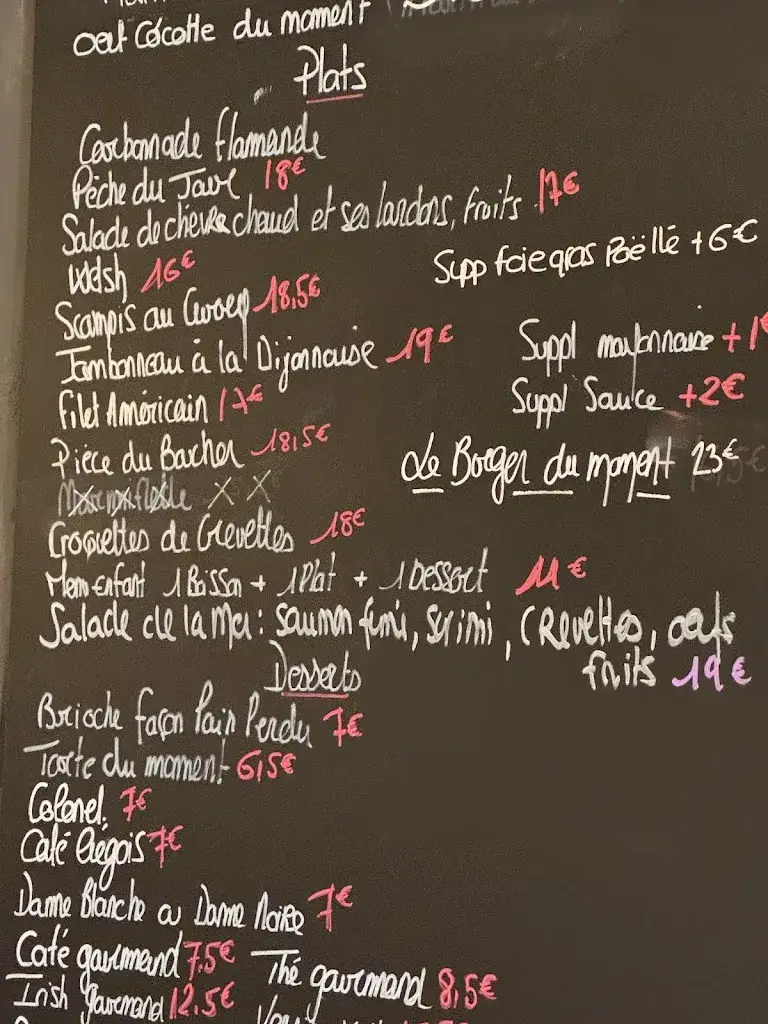 oeuf Cocotte du moment
Plats
Carbonnade flamande
Pêche du Jour 18€
Salade de chèvre chaud et ses lardons, fruits 17€
Welsh 16€
Supp foie gras Poëllé +6€
Scampis au Curry 18,5€
Jambonneau à la Dijonnaise 19€
Suppl mayonnaise +1€
Filet Américain 17€
Suppl Sauce +2€
Pièce du Boucher 18,5€
Le Burger du moment 23€
Croquettes de Crevettes 18€
Menu enfant 1 Boisson + 1 Plat + 1 Dessert 11€
Salade de la Mer: saumon fumé, surimi, crevettes, oeufs
fruits 19€
Desserts
Brioche façon Pain Perdu 7€
Tarte du moment 6,5€
Colonel 7€
Café liégois 7€
Dame Blanche ou Dame Noire 7€
Café gourmand 7.5€ Thé gourmand 8,5€
Irish gourmand 12.5€